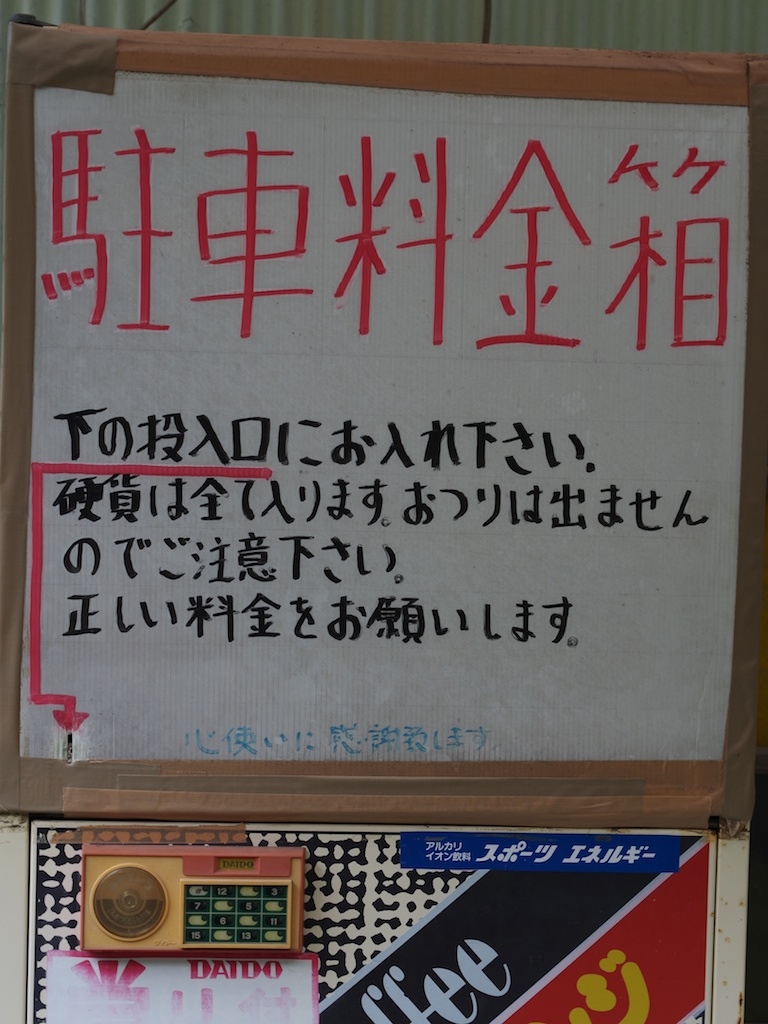 駐車料金箱
下の投入口にお入れ下さい.
硬貨は全て入ります。おつりは出ません
のでご注意下さい。
正しい料金をお願いします。
心使いに感謝致します.
アルカリ
イオン飲料 スポーツ エネルギー
DAIDO
12 3
7 5
6 11
15 13
DAIDO
当り付
ffee